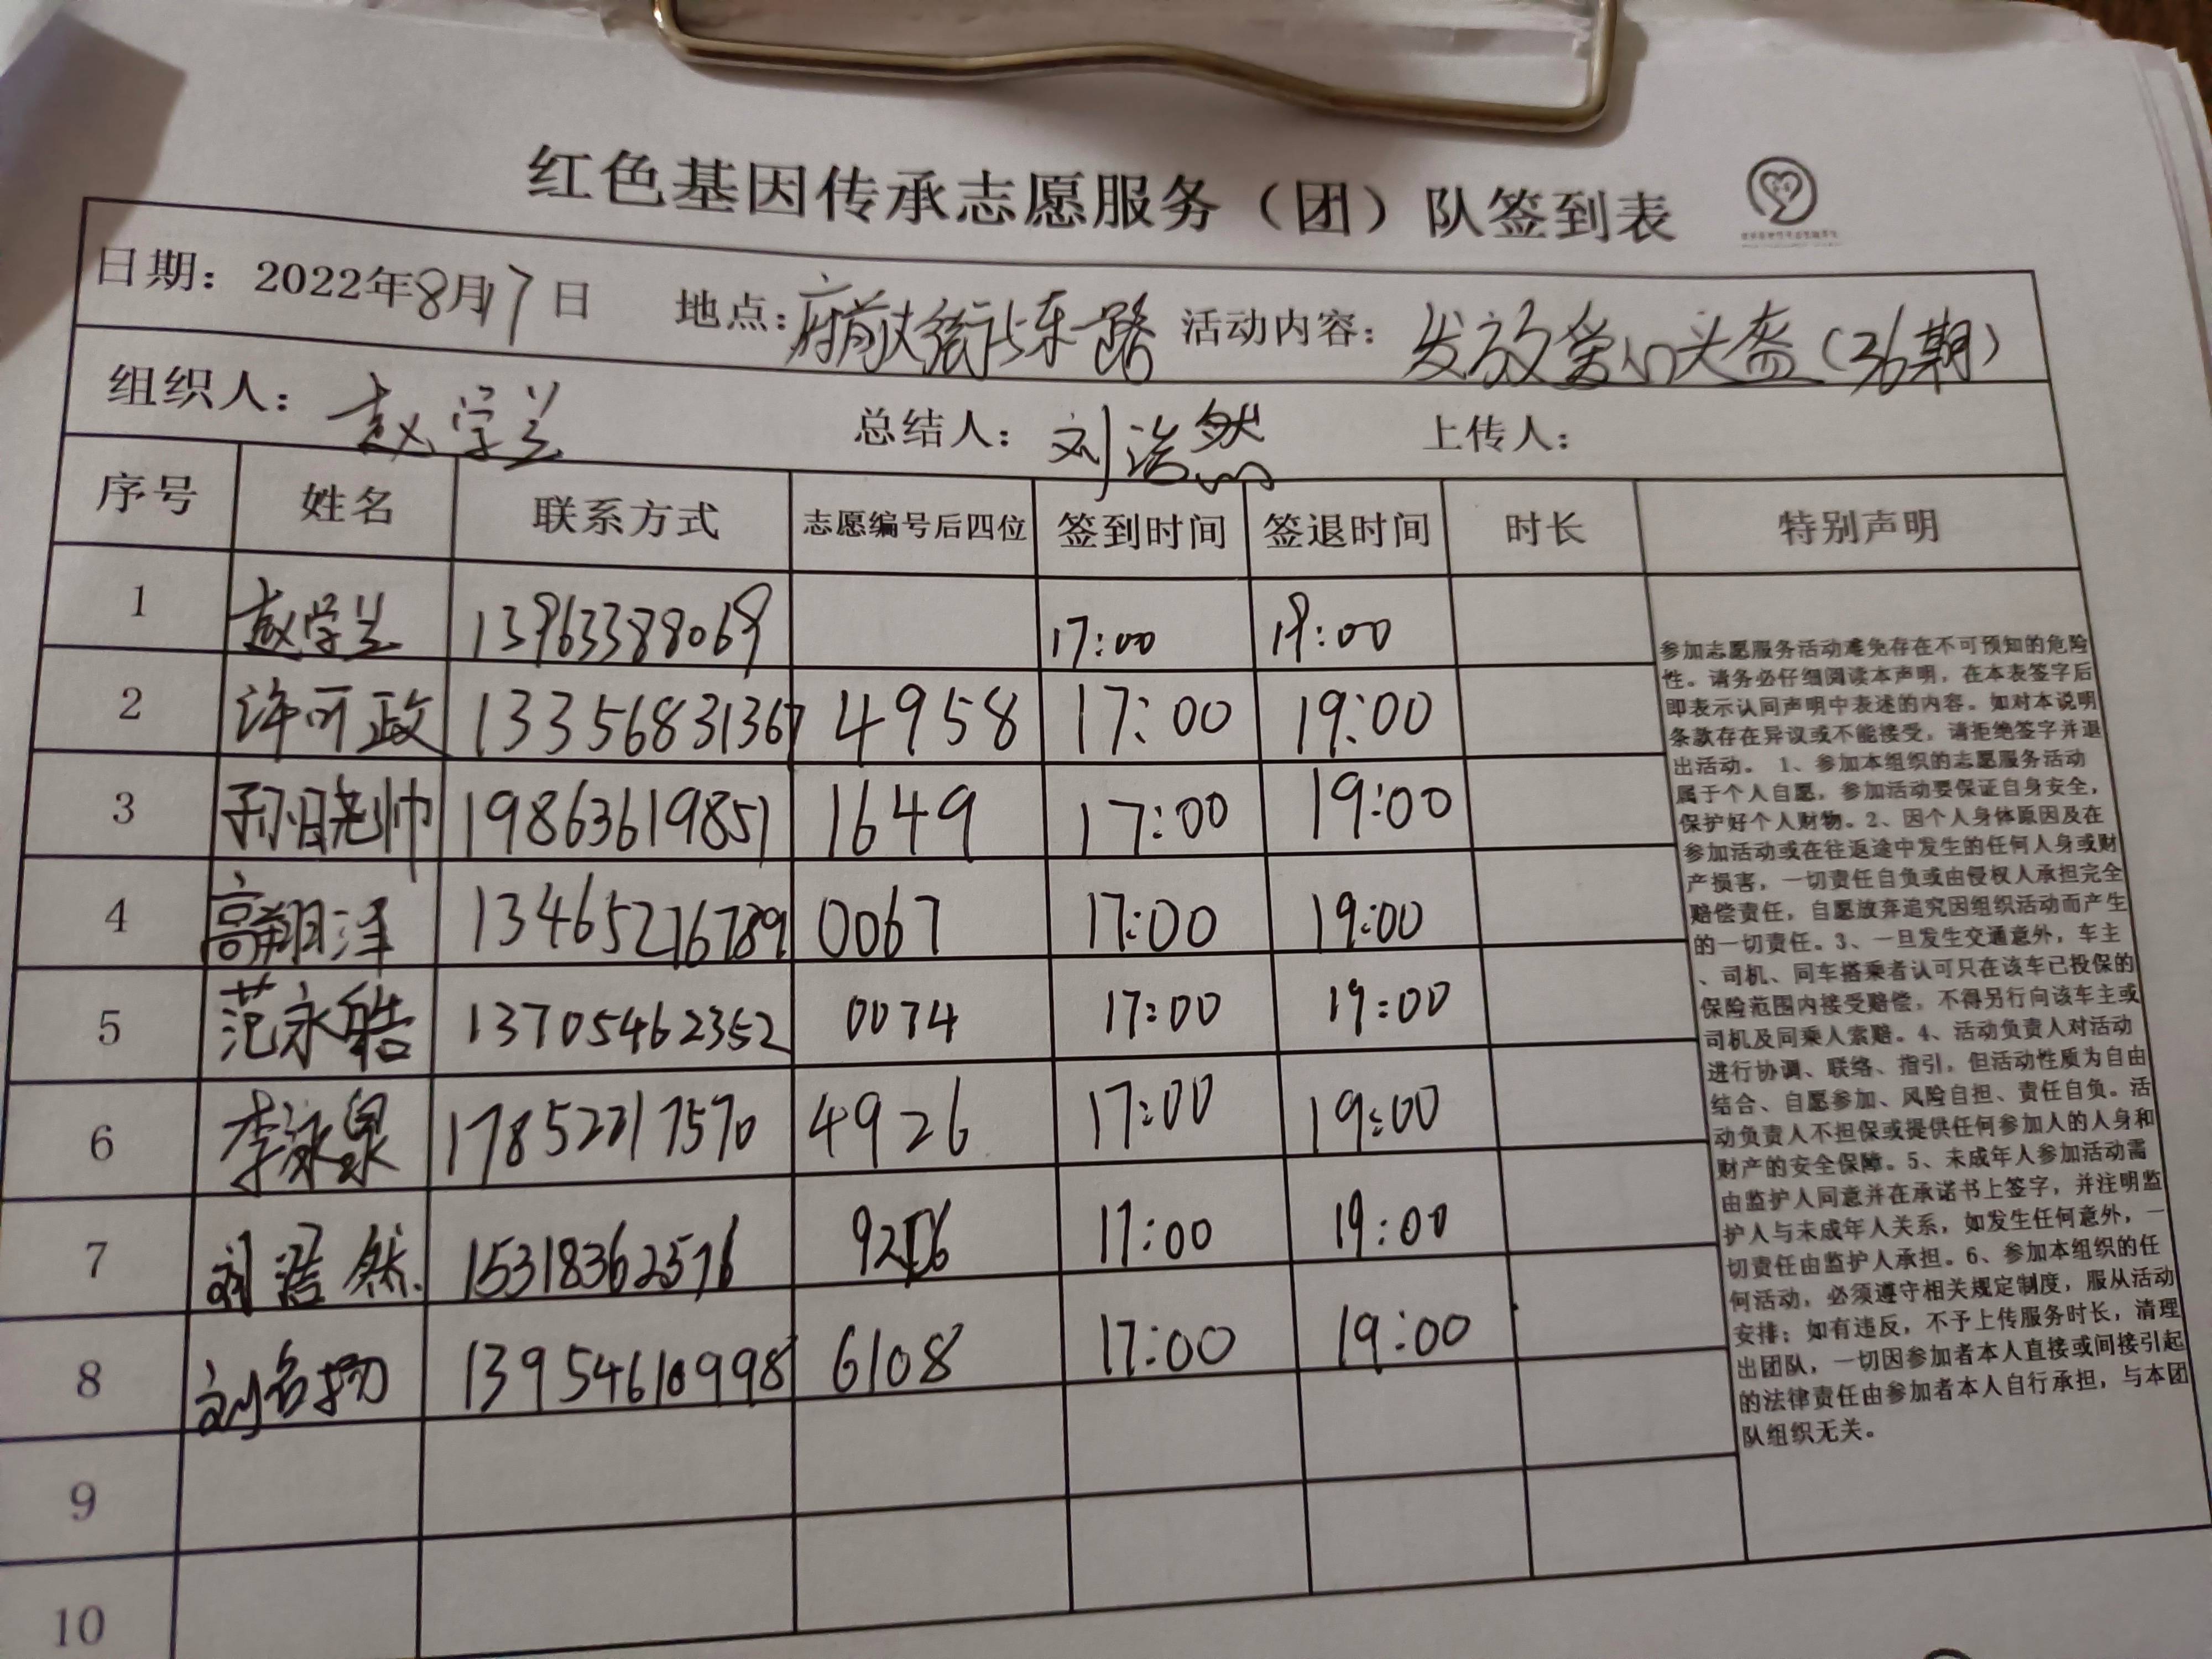 红色基因传承志愿服务（团）队签到表
日期：2022年8月17日 地点：府前大街北东一路 活动内容：发放爱心头盔（36期）
组织人：赵学兰 总结人：刘浩然 上传人：
序号 姓名 联系方式 志愿编号后四位 签到时间 签退时间 时长 特别声明
1 赵学兰 13963388069 17:00 19:00
2 许可政 13356831367 4958 17:00 19:00
3 孙晓帅 19863619851 1649 17:00 19:00
4 高翔泽 13465276789 0067 17:00 19:00
5 范永皓 13705462352 0074 17:00 19:00
6 李泳泉 17852217570 4926 17:00 19:00
7 刘浩然 15318362576 17:00 19:00
8 刘名扬 13954610998 6108 17:00 19:00
9
10
参加志愿服务活动难免存在不可预知的危险
性。请务必仔细阅读本声明，在本表签字后
即表示认同声明中表述的内容。如对本说明
条款存在异议或不能接受，请拒绝签字并退
出活动。 1、参加本组织的志愿服务活动
属于个人自愿，参加活动要保证自身安全，
保护好个人财物。2、因个人身体原因及在
参加活动或在往返途中发生的任何人身或财
产损害，一切责任自负或由侵权人承担完全
赔偿责任，自愿放弃追究因组织活动而产生
的一切责任。3、一旦发生交通意外，车主
、司机、同车搭乘者认可只在该车已投保的
保险范围内接受赔偿，不得另行向该车主或
司机及同乘人索赔。4、活动负责人对活动
进行协调、联络、指引，但活动性质为自由
结合、自愿参加、风险自担、责任自负。活
动负责人不担保或提供任何参加人的人身和
财产的安全保障。5、未成年人参加活动需
由监护人同意并在承诺书上签字，并注明监
护人与未成年人关系，如发生任何意外，一
切责任由监护人承担。6、参加本组织的任
何活动，必须遵守相关规定制度，服从活动
安排；如有违反，不予上传服务时长，清理
出团队，一切因参加者本人直接或间接引起
的法律责任由参加者本人自行承担，与本团
队组织无关。